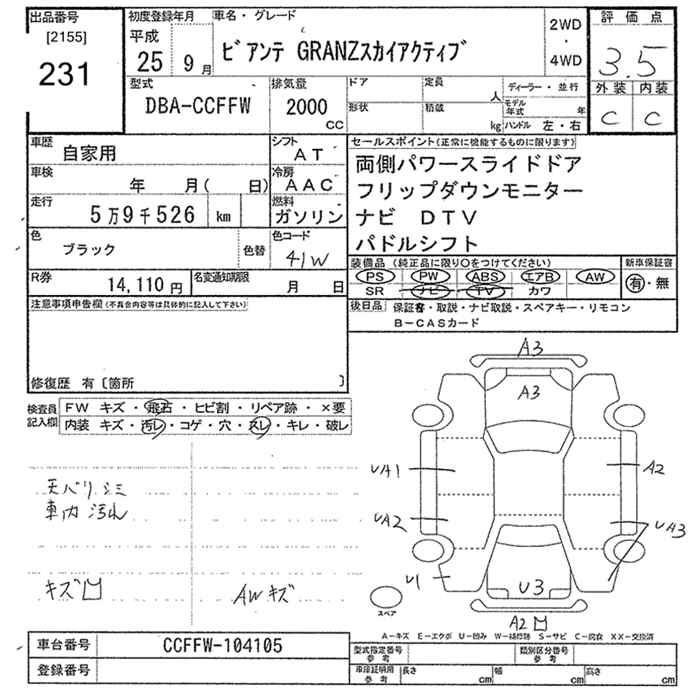 出品番号
[2155]
231
初度登録年月
平成
25 9 月
車名・グレード
ビアンテ GRANZスカイアクティブ
2WD
・
4WD
評価点
3.5
外装 内装
C C
型式
DBA-CCFFW
排気量
2000
CC
ドア
形状
定員
人
積載
kg
ディーラー・並行
モデル年式 年
ハンドル 左・右
車歴
自家用
シフト
AT
車検
年 月( 日)
冷房
AAC
走行
5万9千526 km
燃料
ガソリン
色
ブラック
色替
色コード
41W
R券
14,110 円
名変通知期限
月 日
セールスポイント(正常に機能するものに限ります)
両側パワースライドドア
フリップダウンモニター
ナビ DTV
パドルシフト
装備品(純正品に限り○をつけてください)
PS PW ABS エアB AW
SR ナビ TV カワ
新車保証書
有・無
後日品 保証書・取説・ナビ取説・スペアキー・リモコン
B-CASカード
注意事項申告欄(不具合内容等は具体的に記入して下さい)
修復歴 有〔箇所 〕
検査員記入欄
FW キズ・飛石・ヒビ割・リペア跡・×要
内装 キズ・汚レ・コゲ・穴・スレ・キレ・破レ
天バリシミ
車内汚れ
キズ
AWキズ
A3
A3
UA1
A2
UA2
UA3
U1
U3
A2
スペア
A-キズ E-エクボ U-凹み W-補修跡 S-サビ C-腐食 XX-交換済
車台番号
CCFFW-104105
登録番号
型式指定番号
参考
類別区分番号
参考
車庫証明用
参考
長さ cm
幅 cm
高さ cm